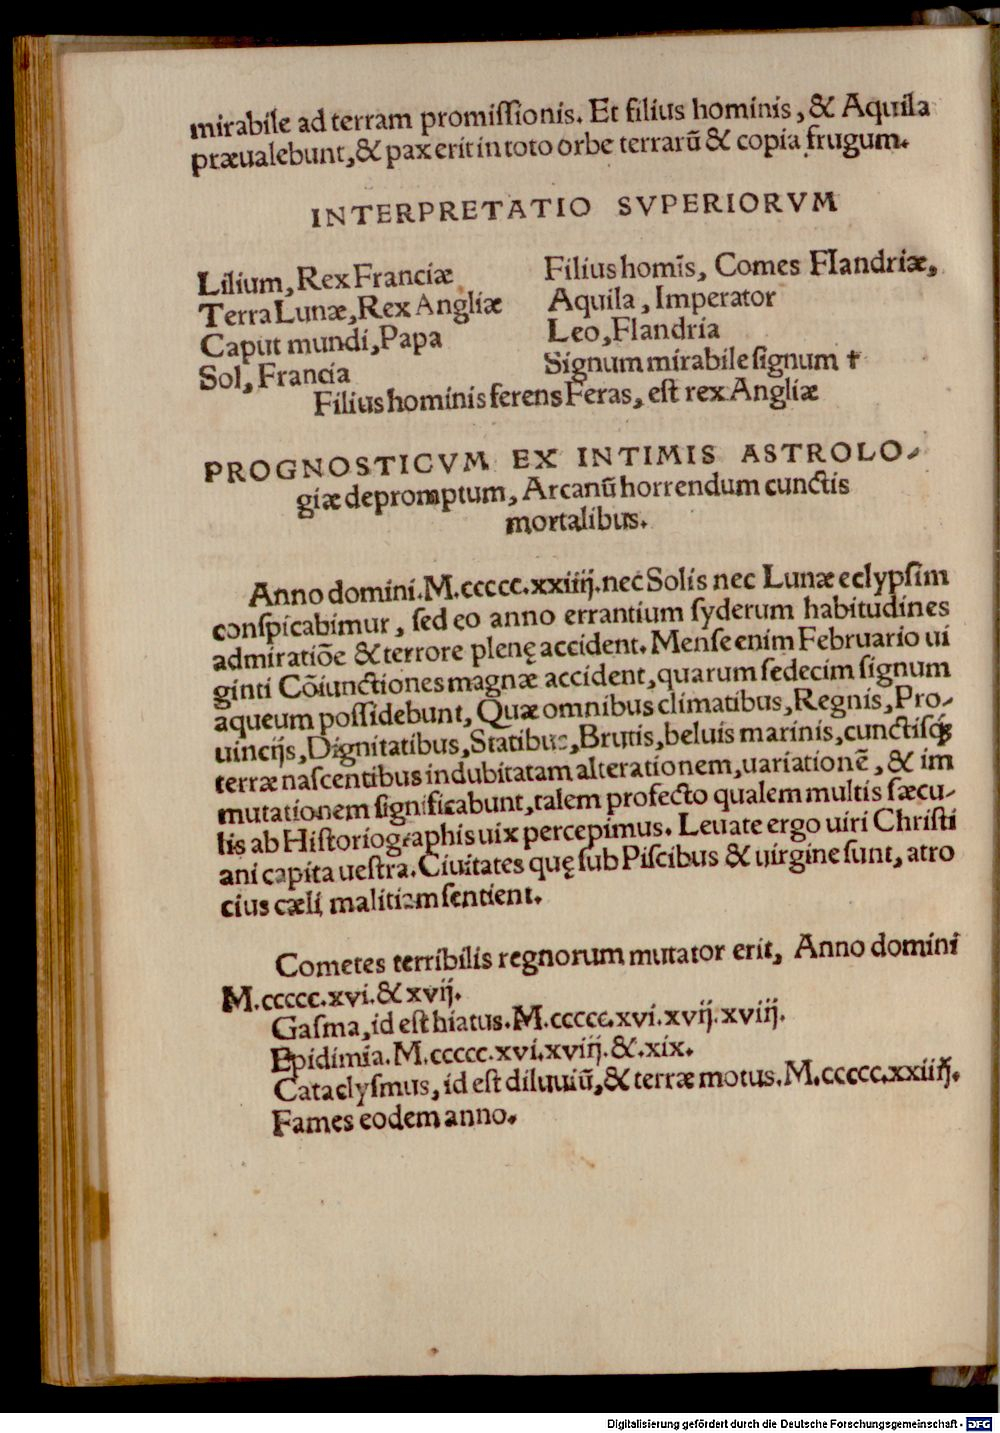 mirabile ad terram promiſſionis. Et filius hominis, & Aquila
præualebunt, & pax erit in toto orbe terrarū & copia frugum.
INTERPRETATIO SVPERIORVM
Lilium, Rex Franciæ
Terra Lunæ, Rex Angliæ
Caput mundi, Papa
Sol, Francia
Filius homīs, Comes Flandriæ,
Aquila, Imperator
Leo, Flandria
Signum mirabile ſignum †
Filius hominis ferens Feras, eſt rex Angliæ
PROGNOSTICVM EX INTIMIS ASTROLO-
giæ depromptum, Arcanū horrendum cunctis
mortalibus.
Anno domini. M.ccccc.xxiiij. nec Solis nec Lunæ eclypſim
conſpicabimur, ſed eo anno errantium ſyderum habitudines
admiratiōe & terrore plenę accident. Menſe enim Februario ui
ginti Cōiunctiones magnæ accident, quarum ſedecim ſignum
aqueum poſſidebunt, Quæ omnibus climatibus, Regnis, Pro-
uincijs, Dignitatibus, Statibus, Brutis, beluis marinis, cunctiſqꝫ
terræ naſcentibus indubitatam alterationem, uariationē, & im
mutationem ſignificabunt, talem profecto qualem multis ſæcu-
lis ab Hiſtoriographis uix percepimus. Leuate ergo uiri Chriſti
ani capita ueſtra. Ciuitates quę ſub Piſcibus & uirgine ſunt, atro
cius cæli malitiam ſentient.
Cometes terribilis regnorum mutator erit, Anno domini
M.ccccc.xvi. & xvij.
Gaſma, id eſt hiatus. M.ccccc.xvi.xvij.xviij.
Epidimia. M.ccccc.xvi.xviij. &.xix.
Cataclyſmus, id eſt diluuiū, & terræ motus. M.ccccc.xxiiij.
Fames eodem anno.
Digitalisierung gefördert durch die Deutsche Forschungsgemeinschaft - DFG